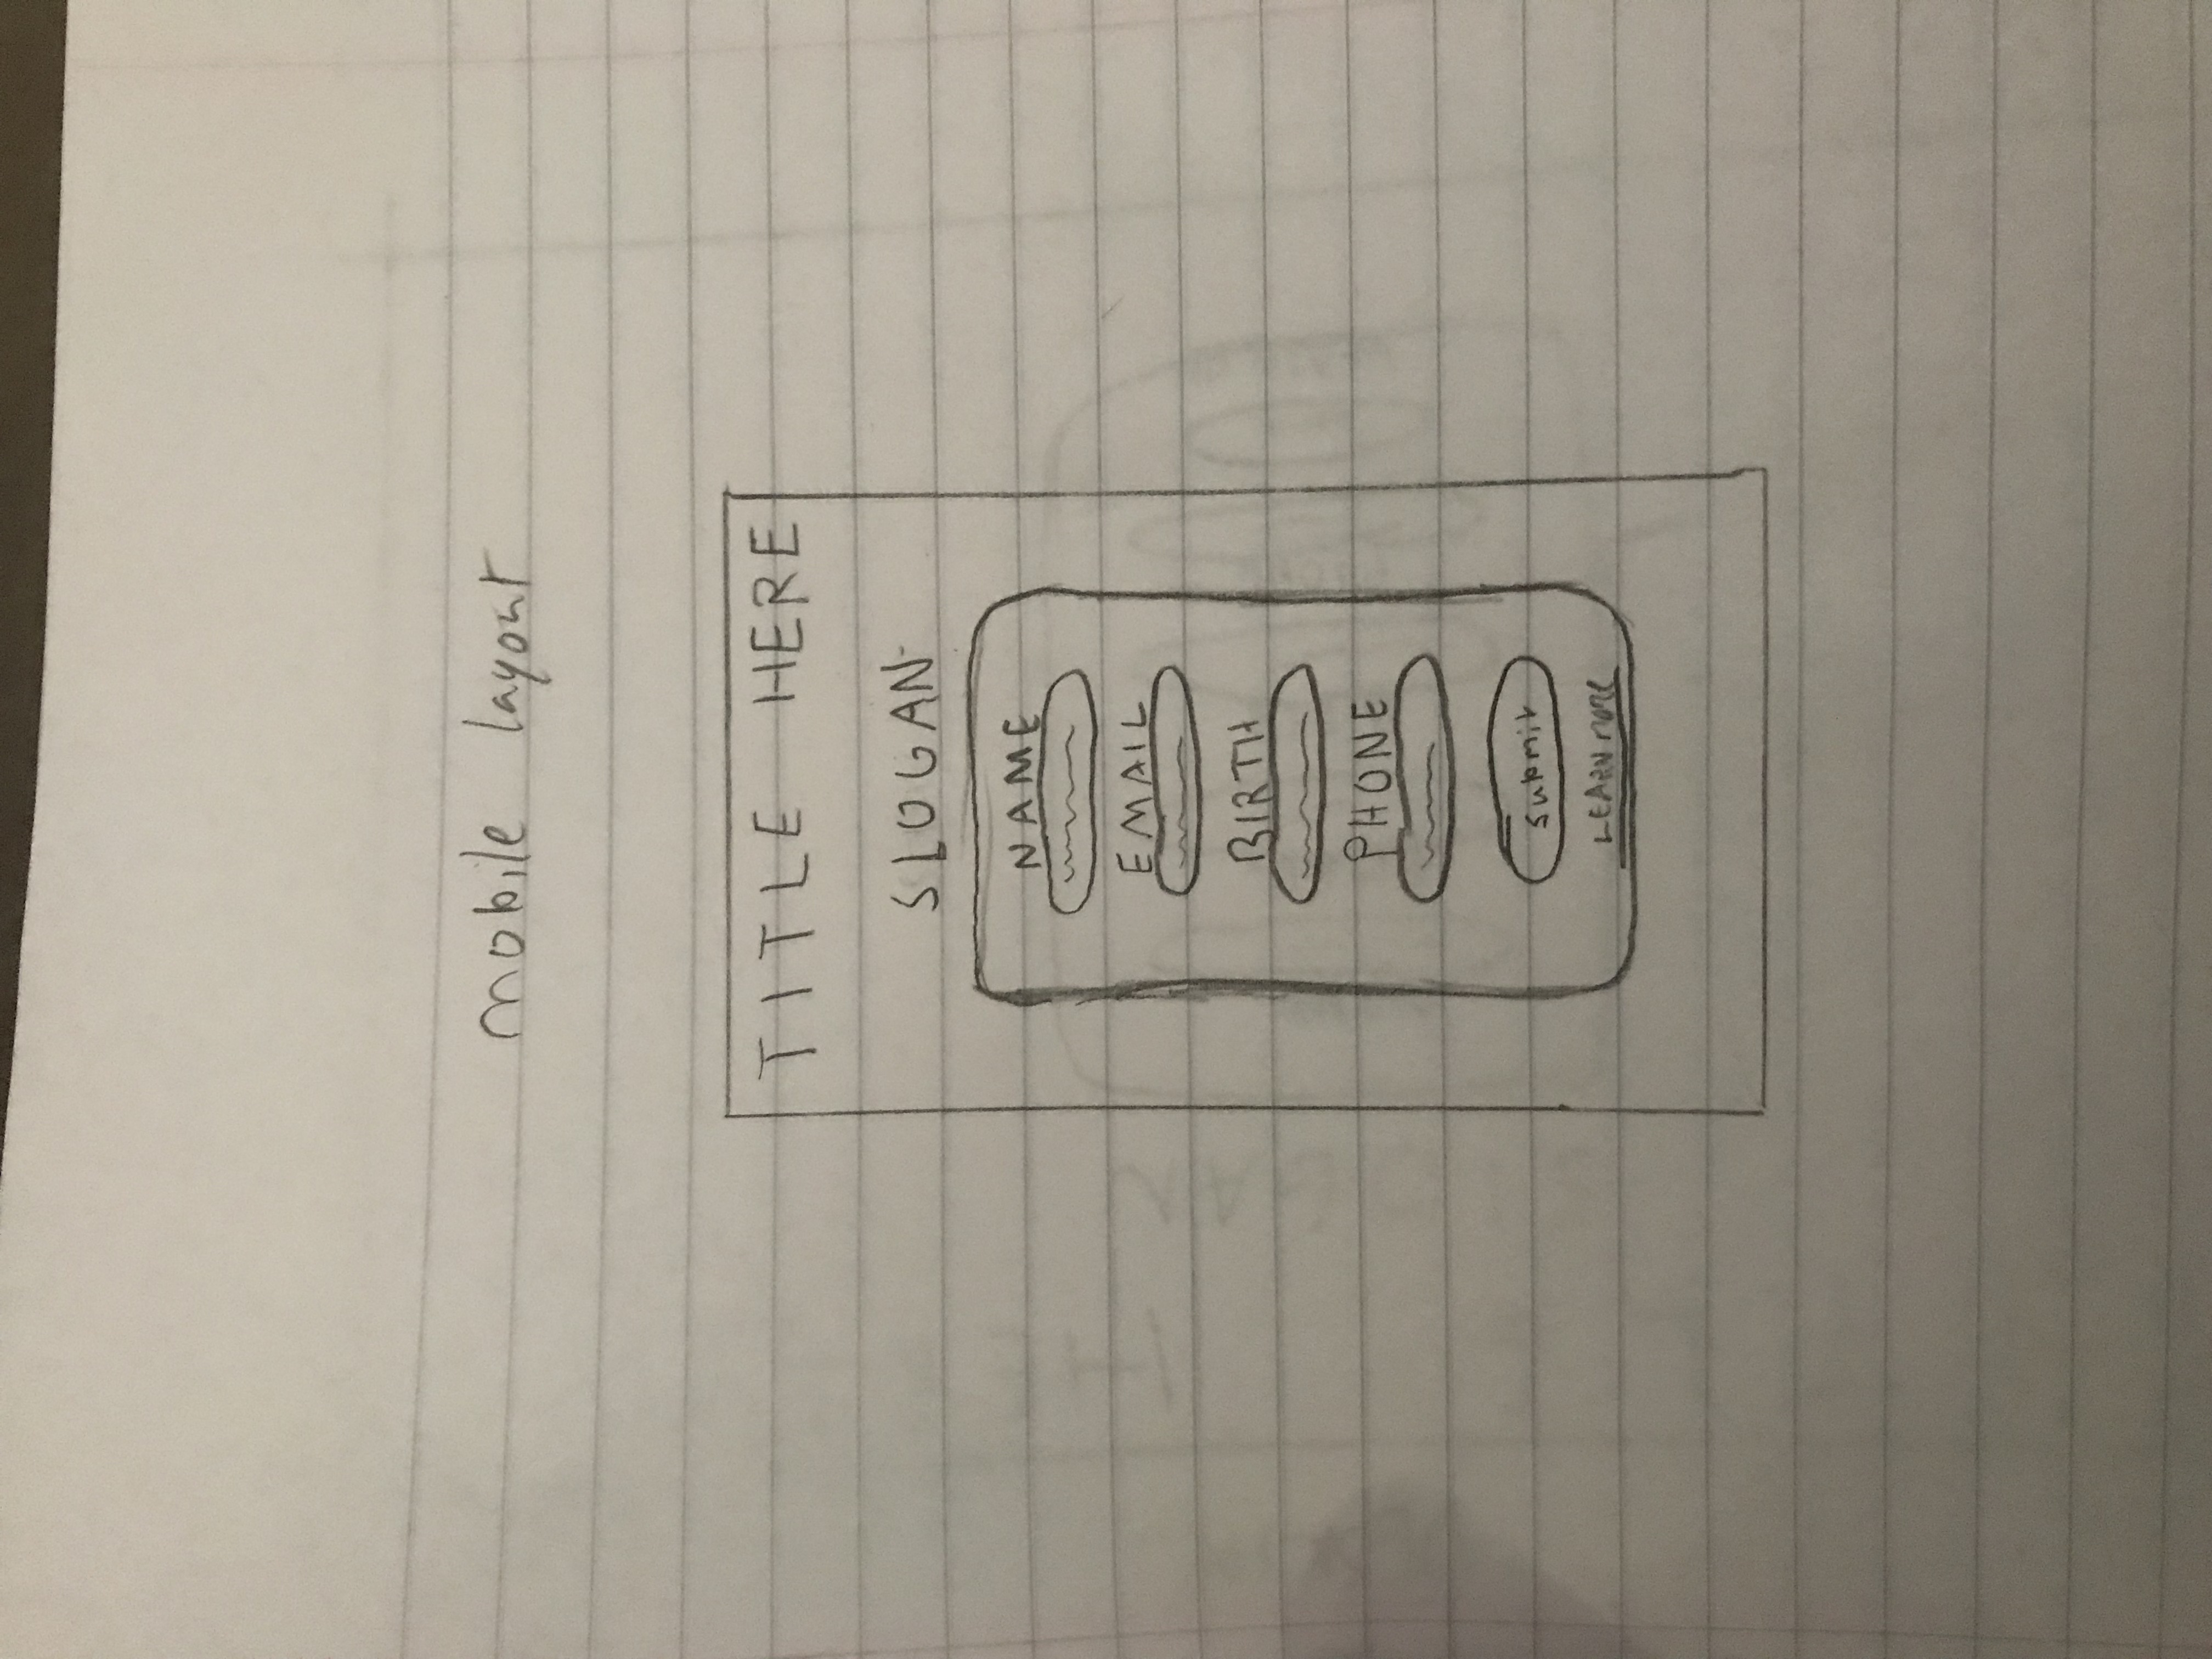 mobile layout
TITLE HERE
SLOGAN
NAME
EMAIL
BIRTH
PHONE
submit
LEARN MORE